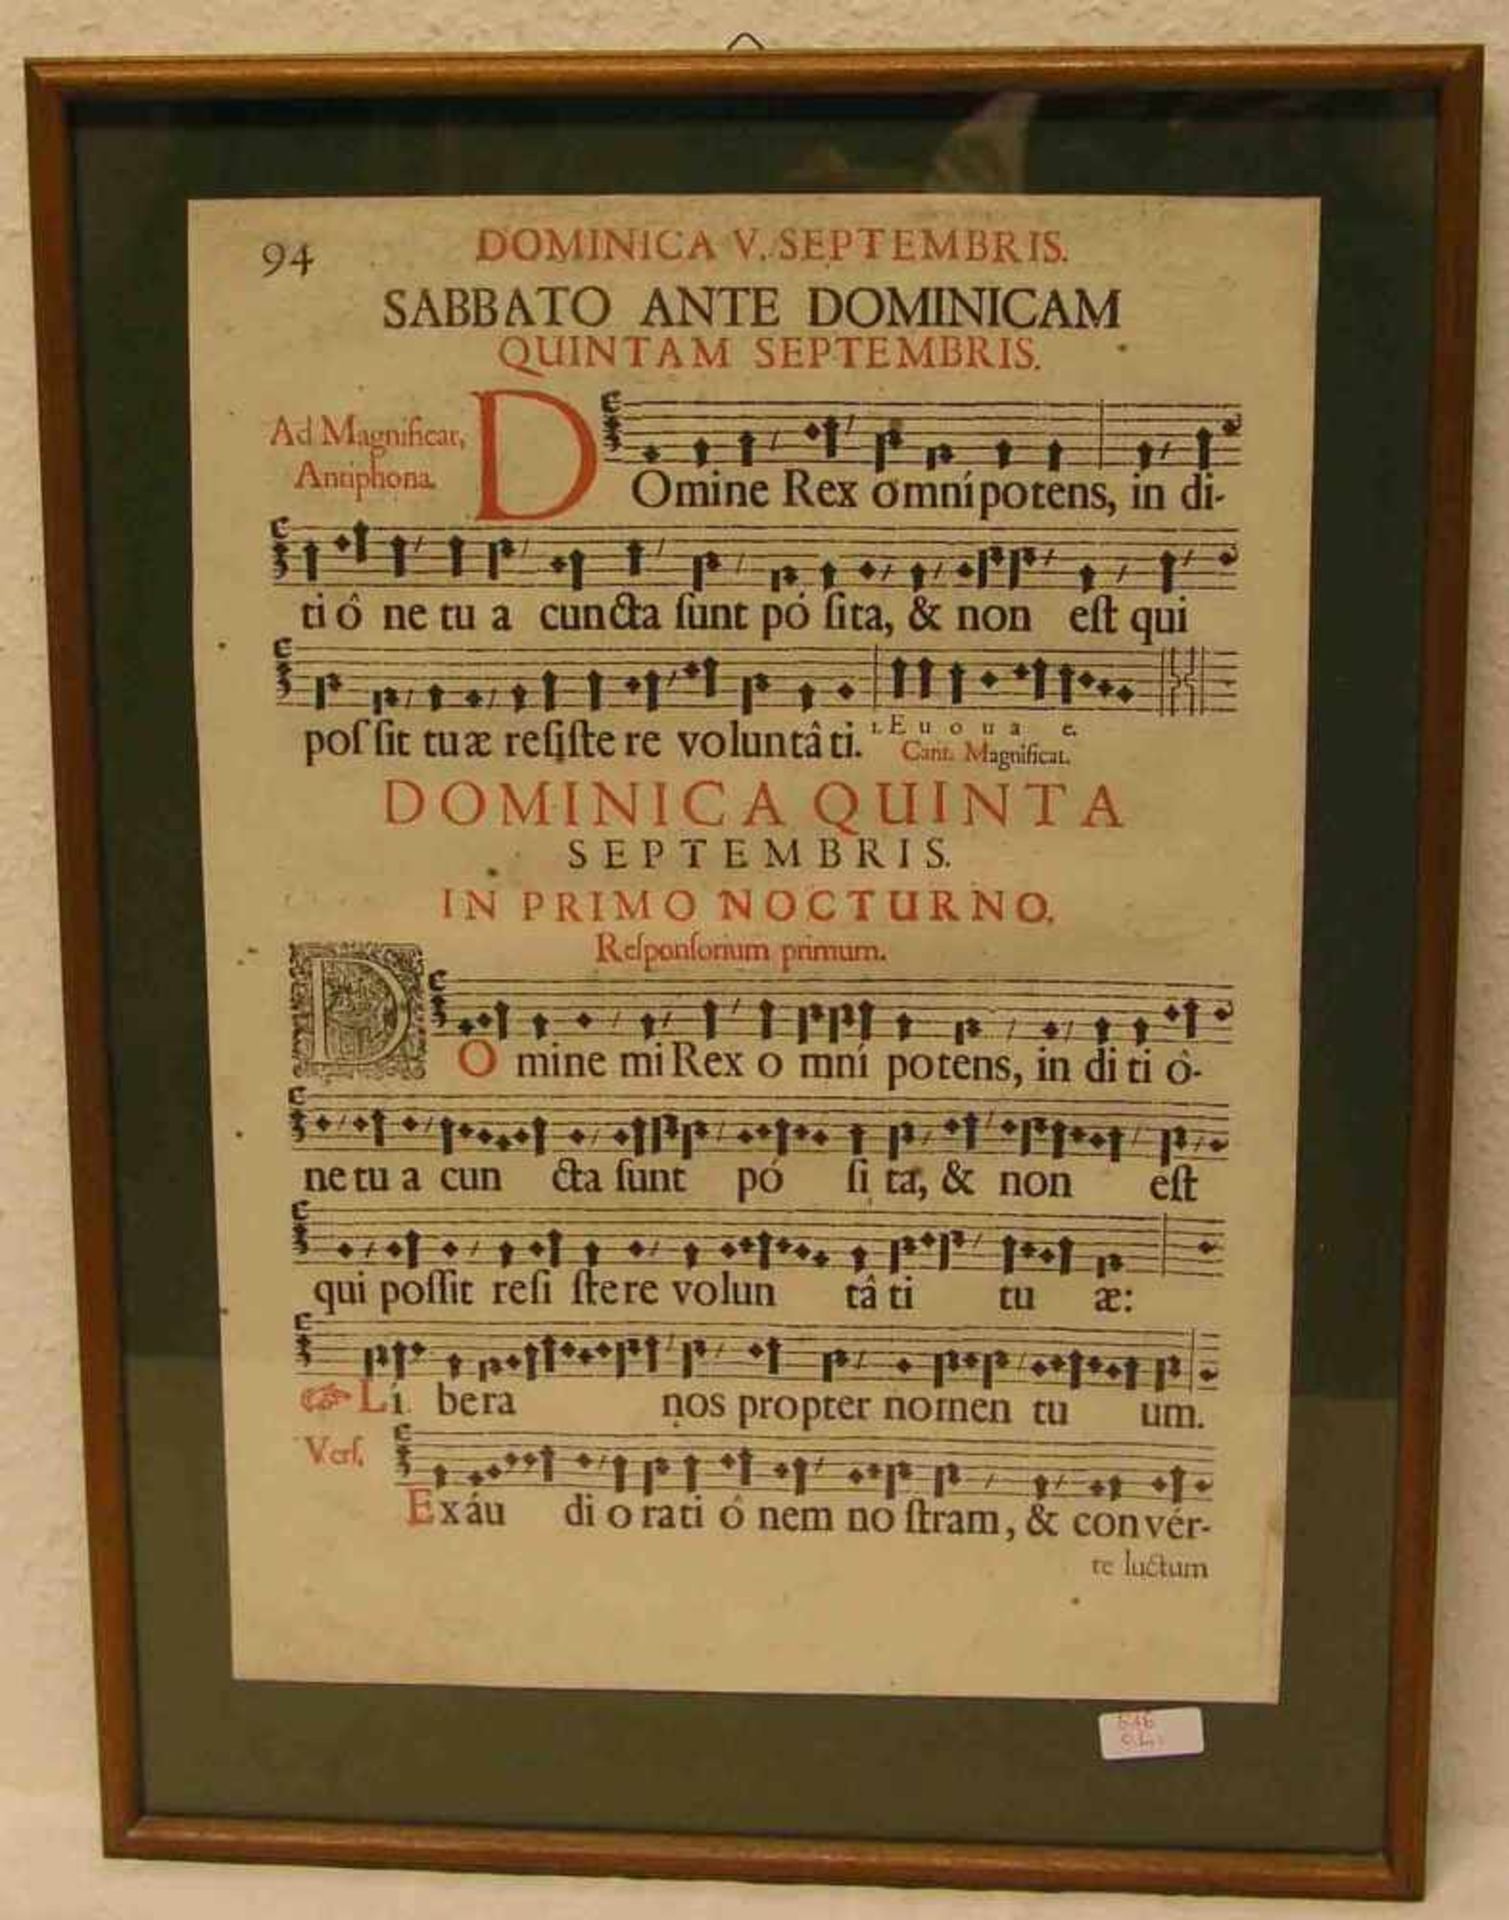 94
DOMINICA V. SEPTEMBRIS.
SABBATO ANTE DOMINICAM
QUINTAM SEPTEMBRIS.
Ad Magnificat,
Antiphona.
DOmine Rex omní potens, in di-
ti ô ne tu a cuncta ſunt pó ſita, & non eſt qui
poſ ſit tu æ reſiſte re voluntâ ti. 1. E u o u a e.
Cant. Magnificat.
DOMINICA QUINTA
SEPTEMBRIS.
IN PRIMO NOCTURNO.
Reſponſorium primum.
DO mine mi Rex o mní potens, in di ti ô-
ne tu a cun cta ſunt pó ſi ta, & non eſt
qui poſſit reſi ſtere volun tâ ti tu æ:
☞ Lí bera nos propter nomen tu um.
Verſ.
Exáu di o rati ó nem no ſtram, & con vér-
te luctum